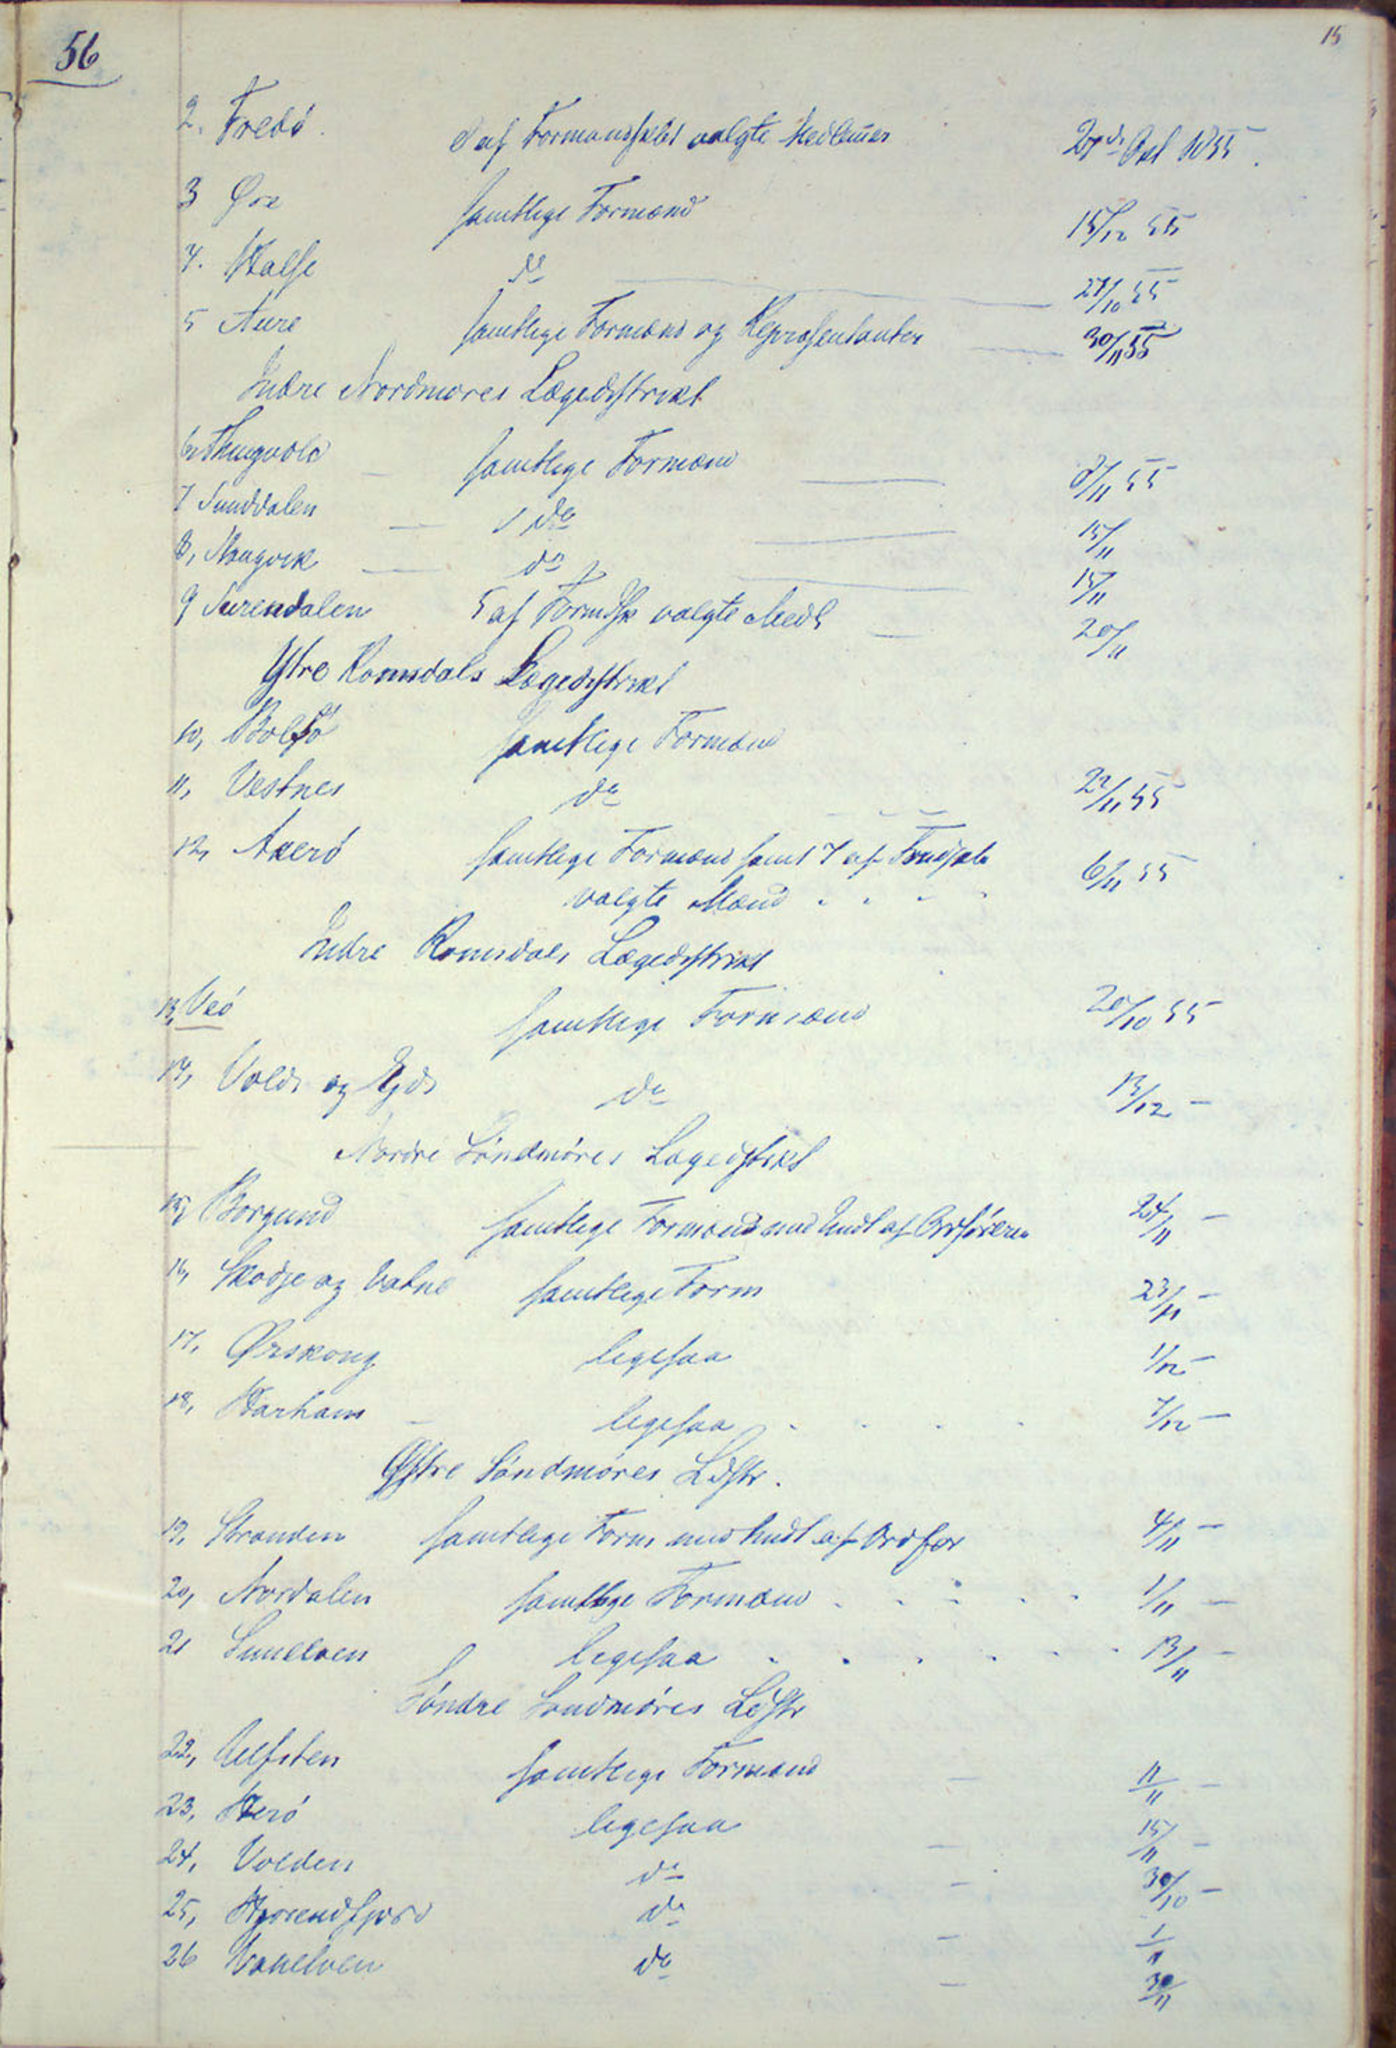 56
15
2. Fredö af Formandskabet valgte Medlemer Oct 1855.
3 Øre samtlige Formænd 15/12 55
4. Halse do 27/10 55
5 Aure samtlige Formænd og Repræsentanter 30/11 55
Indre Nordmøres Lægedistrikt
6, Thingvold samtlige Formænd /11 55
7 Sunddalen do 15/11
8, Stangvik do 15/11
9 Surendalen 5 af Formdsk valgte Medl 20/11
Ytre Romsdals Lægedistrikt
10, Bolsö samtlige Formænd
11, Vestnes do 22/11 55
12, Akerö samtlige Formænd samt 7 af Fmdskb 6/11 55
valgte Mænd . . . .
Indre Romsdals Lægedistrikt
13, Veö samtlige Formænd 20/10 55
14, Volds og Eids do 13/12 —
Nordre Söndmöres Lægedistrikt
15, Borgund samtlige Formænd med Undt af Ordföreren 24/11 —
16, Skodje og Vatne samtlige Form 23/11 —
17, Ørskoug ligesaa 1/12 —
18, Harham — ligesaa . . . . 7/12 —
Østre Söndmöres Ldistr.
19, Stranden samtlige Form med Undt af Ordför 4/11 —
20, Nordalen samtlige Formænd . . . . . 1/11 —
21 Sunelven ligesaa . . . . . . 13/11 —
Söndre Söndmöres Ldistr
22, Ulfsten samtlige Formænd — 11/11 —
23, Herö ligesaa 15/11 —
24, Volden do — 30/10 —
25, Hjorendfjord do — 1/11
26 Vanelven do — 30/11